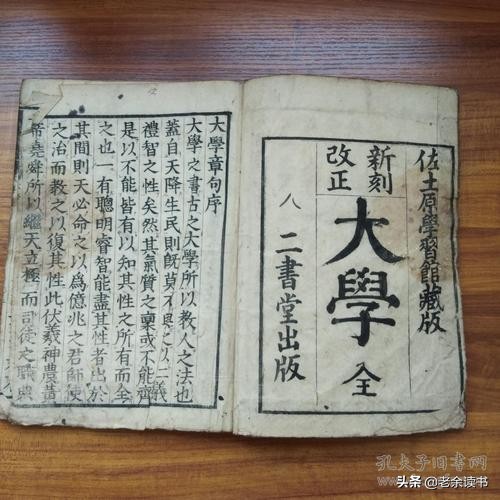 佐土原學習館藏版
新刻
改正
大學 全
八 二書堂出版
大學章句序
大學之書古之大學所以教人之法也
蓋自天降生民則既莫不與之以仁義
禮智之性矣然其氣質之稟或不能齊
是以不能皆有以知其性之所有而全
之也一有聰明睿智能盡其性者出於
其間則天必命之以爲億兆之君師使
之治而教之以復其性此伏羲神農黃
帝堯舜所以繼天立極而司徒之職典
孔夫子旧书网
头条 @老余读书